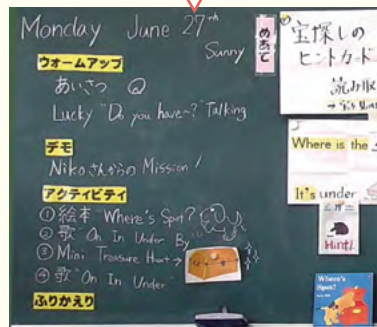 Monday June 27th
Sunny
ウォームアップ
あいさつ
Lucky "Do you have~?" Talking
デモ
Nikoさんからの Mission!
アクティビティ
① 絵本 Where's Spot?
② 歌 "On In Under By"
③ Mini Treasure Hunt →
④ 歌 "On In Under"
ふりかえり
めあて
宝探しの
ヒントカード
読み取
Where is the
It's under
Hint!
Where's
Spot?